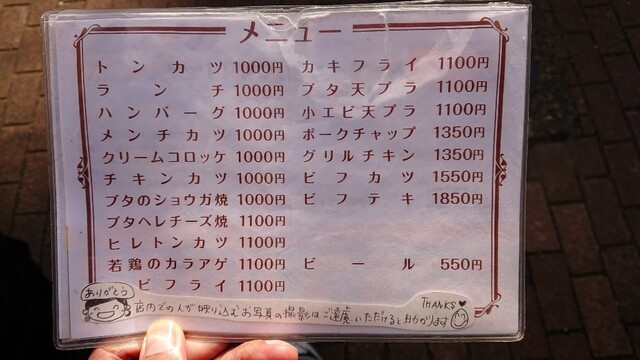 メニュー
トンカツ 1000円
ランチ 1000円
ハンバーグ 1000円
メンチカツ 1000円
クリームコロッケ 1000円
チキンカツ 1000円
ブタのショウガ焼 1000円
ブタヘレチーズ焼 1100円
ヒレトンカツ 1100円
若鶏のカラアゲ 1100円
ビフライ 1100円
カキフライ 1100円
ブタ天プラ 1100円
小エビ天プラ 1100円
ポークチャップ 1350円
グリルチキン 1350円
ビフカツ 1550円
ビフテキ 1850円
ビール 550円
ありがとう
店内での人が映り込むお写真の撮影はご遠慮いただけると助かります
THANKS♥